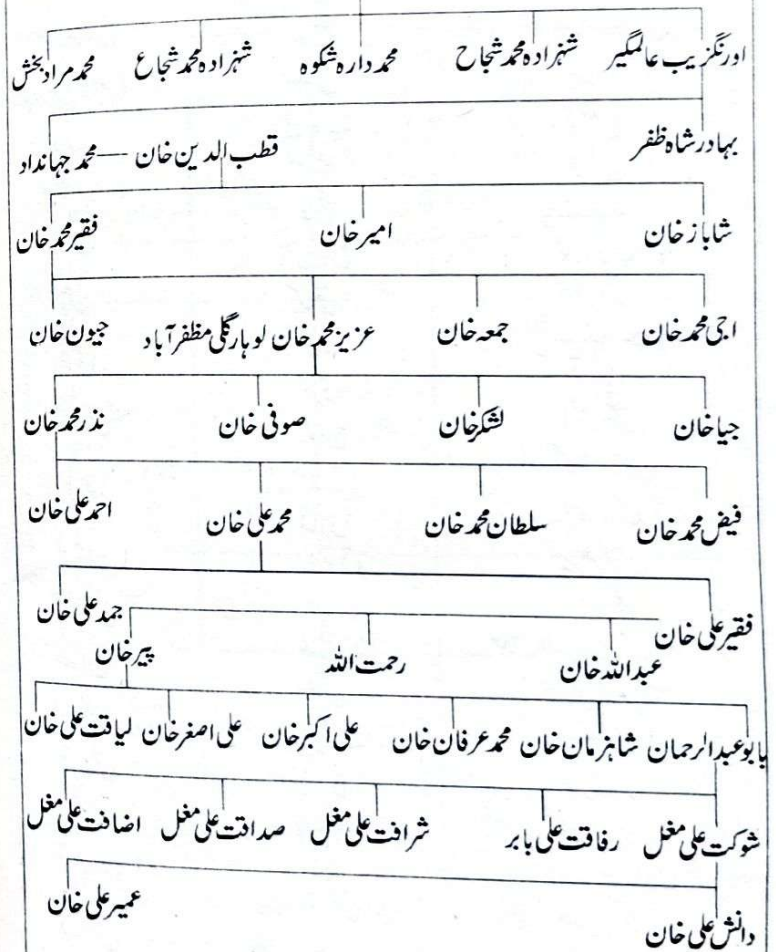 اورنگزیب عالمگیر شہزادہ محمد شجاح محمد دارہ شکوہ شہزادہ محمد شجاع محمد مراد بخش
بہادر شاہ ظفر قطب الدین خان — محمد جہانداد
شاباز خان امیر خان فقیر محمد خان
اجی محمد خان جمعہ خان عزیز محمد خان لوہار گلی مظفر آباد جیون خان
جیا خان لشکر خان صوفی خان نذر محمد خان
فیض محمد خان سلطان محمد خان محمد علی خان احمد علی خان
فقیر علی خان جمد علی خان
عبداللہ خان رحمت اللہ پیر خان
بابو عبدالرحمان شاہزمان خان محمد عرفان خان علی اکبر خان علی اصغر خان لیاقت علی خان
شوکت علی مغل رفاقت علی بابر شرافت علی مغل صداقت علی مغل اضافت علی مغل
دانش علی خان عمیر علی خان